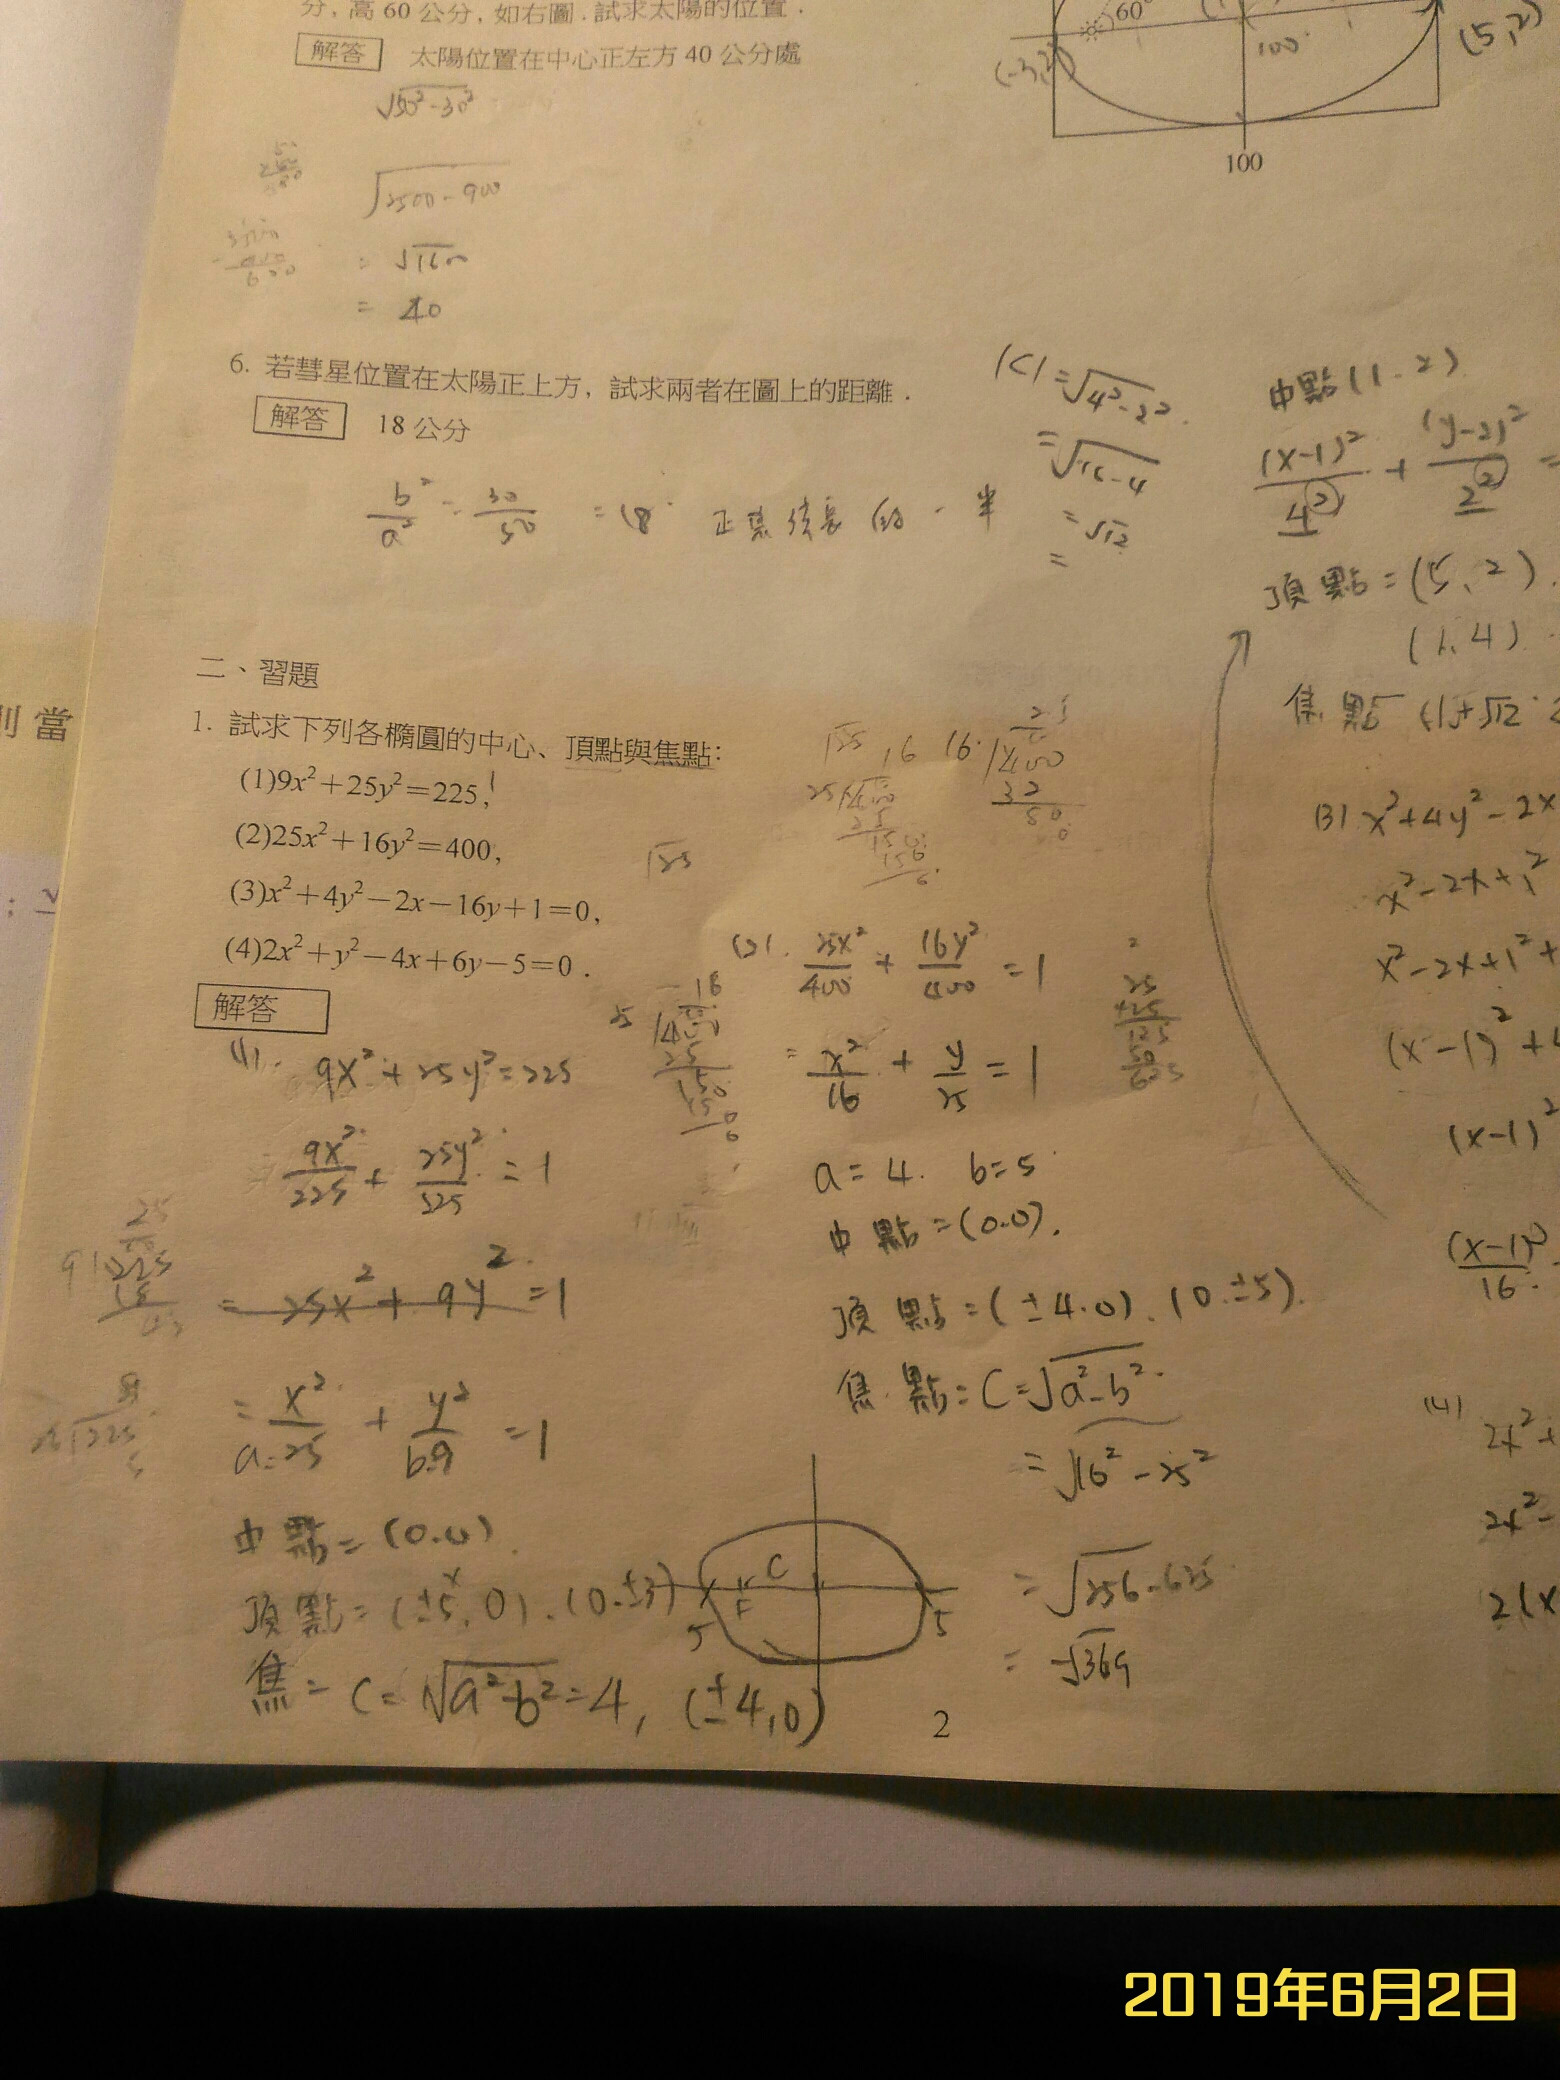 分，高 60 公分，如右圖．試求太陽的位置．
解答 太陽位置在中心正左方 40 公分處
√50²-30²
√2500-900
= √1600
= 40
60°
100
(5,2)
(-3,2)
100
6. 若彗星位置在太陽正上方，試求兩者在圖上的距離．
解答 18 公分
b²/a² = 30/50 = 18 正焦弦長的一半
(C) = √4²-2²
= √16-4
= √12
=
中點(1.2)
(x-1)²/4² + (y-2)²/2² =
頂點=(5,2).
(1,4)
焦點 (1+√12
二、習題
則當
1. 試求下列各橢圓的中心、頂點與焦點：
(1)9x²+25y²=225,
(2)25x²+16y²=400,
(3)x²+4y²-2x-16y+1=0,
(4)2x²+y²-4x+6y-5=0．
解答
(1). 9x²+25y²=225
9x²/225 + 25y²/225 = 1
= 25x²+9y² =1
= x²/a=25 + y²/b=9 =1
中點=(0.0).
頂點=(±5,0).(0.±3)
焦= C=√a²-b²=4, (±4,0)
C
F
5
5
(2). 25x²/400 + 16y²/400 =1
= x²/16 + y/25 =1
a=4. b=5
中點=(0.0).
頂點=(±4.0).(0.±5).
焦點=C=√a²-b²
=√16²-25²
=√256-625
=-√369
(3) x²+4y²-2x
x²-2x+1²
x²-2x+1²+
(x-1)²+4
(x-1)²
(x-1)²/16
(4) 2x²+
2x²-
2(x
2
2019年6月2日